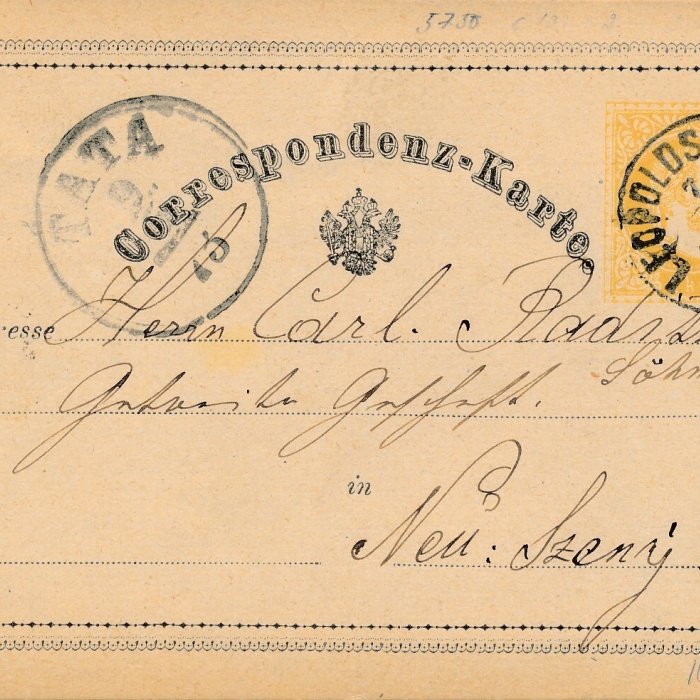 5750
TATA
9
75
Correspondenz-Karte.
LEOPOLDS
resse Herrn Carl. Rad
Söhn
Getreide Geschäft.
in
Neu: Szeny